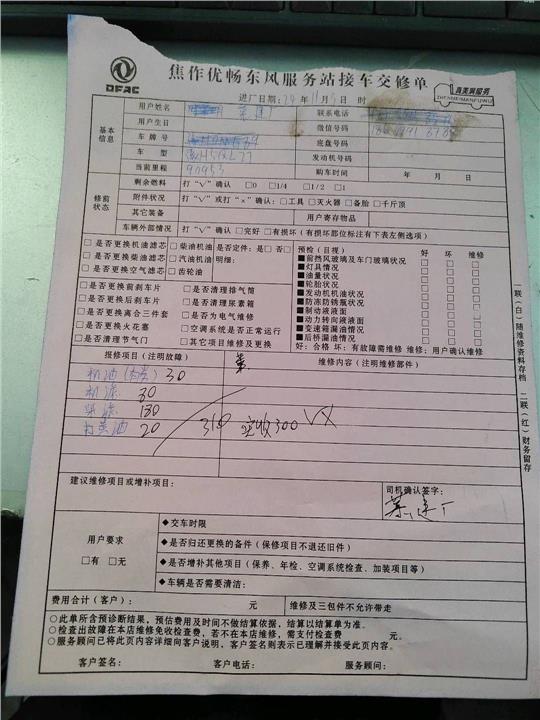 DFAC
焦作优畅东风服务站接车交修单
真美满服务
ZHENMEIMANFUWU
进厂日期: 年 11月5日 时
基本信息
用户姓名 联系电话
用户生日 微信号码
车牌号 底盘号码
车型 发动机号码
当前里程 90953 购车时间 年 月 日
修前状态
剩余燃料 打“V”确认 □0 □1/4 □1/2 □1
附件状况 打“V”或打“×”确认:□工具 □灭火器 □备胎 □千斤顶
其它装备 用户寄存物品
车辆外部情况 打“V”确认 □完好 □有损坏(有损坏部位标注有下表左侧选项)
□是否更换机油滤芯 □柴油机油 是否定件:是□否□
□是否更换柴油滤芯 □汽油机油 明细:
□是否更换空气滤芯 □齿轮油
□是否更换前刹车片 □是否清理排气筒
□是否更换后刹车片 □是否清理尿素箱
□是否更换离合三件套 □是否为电气维修
□是否更换火花塞 □空调系统是否正常运行
□是否清理节气门 □其它项目维修及更换
预检(目视) 好 坏 维修
■前挡风玻璃及车门玻璃状况 □ □ □
■灯具情况 □ □ □
■油量状况 □ □ □
■轮胎状况 □ □ □
■发动机机油状况 □ □ □
■防冻防锈氨状况 □ □ □
■制动液液面 □ □ □
■动力转向液液面 □ □ □
■变速箱漏油情况 □ □ □
■后桥漏油情况 □ □ □
好:合格 坏:有故障需维修 维修:用户确认维修
报修项目(注明故障) 维修内容(注明维修部件)
机油 30
机滤 80
柴滤 180
打黄油 20 310 实收300 VX
建议维修项目或增补项目:
司机确认签字:
用户要求
□有 □无
◆交车时限
◆是否归还更换的备件(保修项目不退还旧件)
◆是否增补其他项目(保养、年检、空调系统检查、加装项目等)
◆车辆是否需要清洁:
费用合计(客户): 元 维修及三包件不允许带走
○此单所含预诊断结果,预估费用及时间不做结算依据,结算以结算单为准。
○检查出故障在本店维修免收检查费,若不在本店维修,需支付检查费 元。
○服务顾问已将此页内容详细向客户说明,客户签名则表示已理解并接受此页内容。
客户签名: 客户电话: 服务顾问:
一联(白)随维修资料存档 二联(红)财务留存